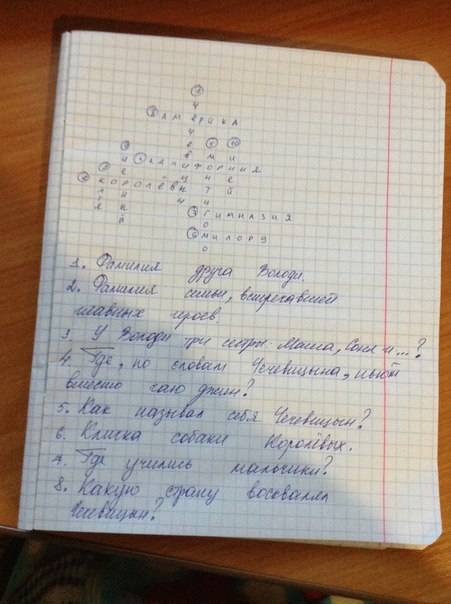 АМЕРИКА
КАЛИФОРНИЯ
КОРОЛЁВЫ
ГИМНАЗИЯ
МИЛОРД
1. Фамилия друга Володи.
2. Фамилия семьи, встречавшей
главных героев.
3. У Володи три сестры: Маша, Соня и...?
4. Где, по словам Чечевицына, пьют
вместо чаю джин?
5. Как называл себя Чечевицын?
6. Кличка собаки Королёвых.
7. Где учились мальчики?
8. Какую страну восхвалял
Чечевицын?